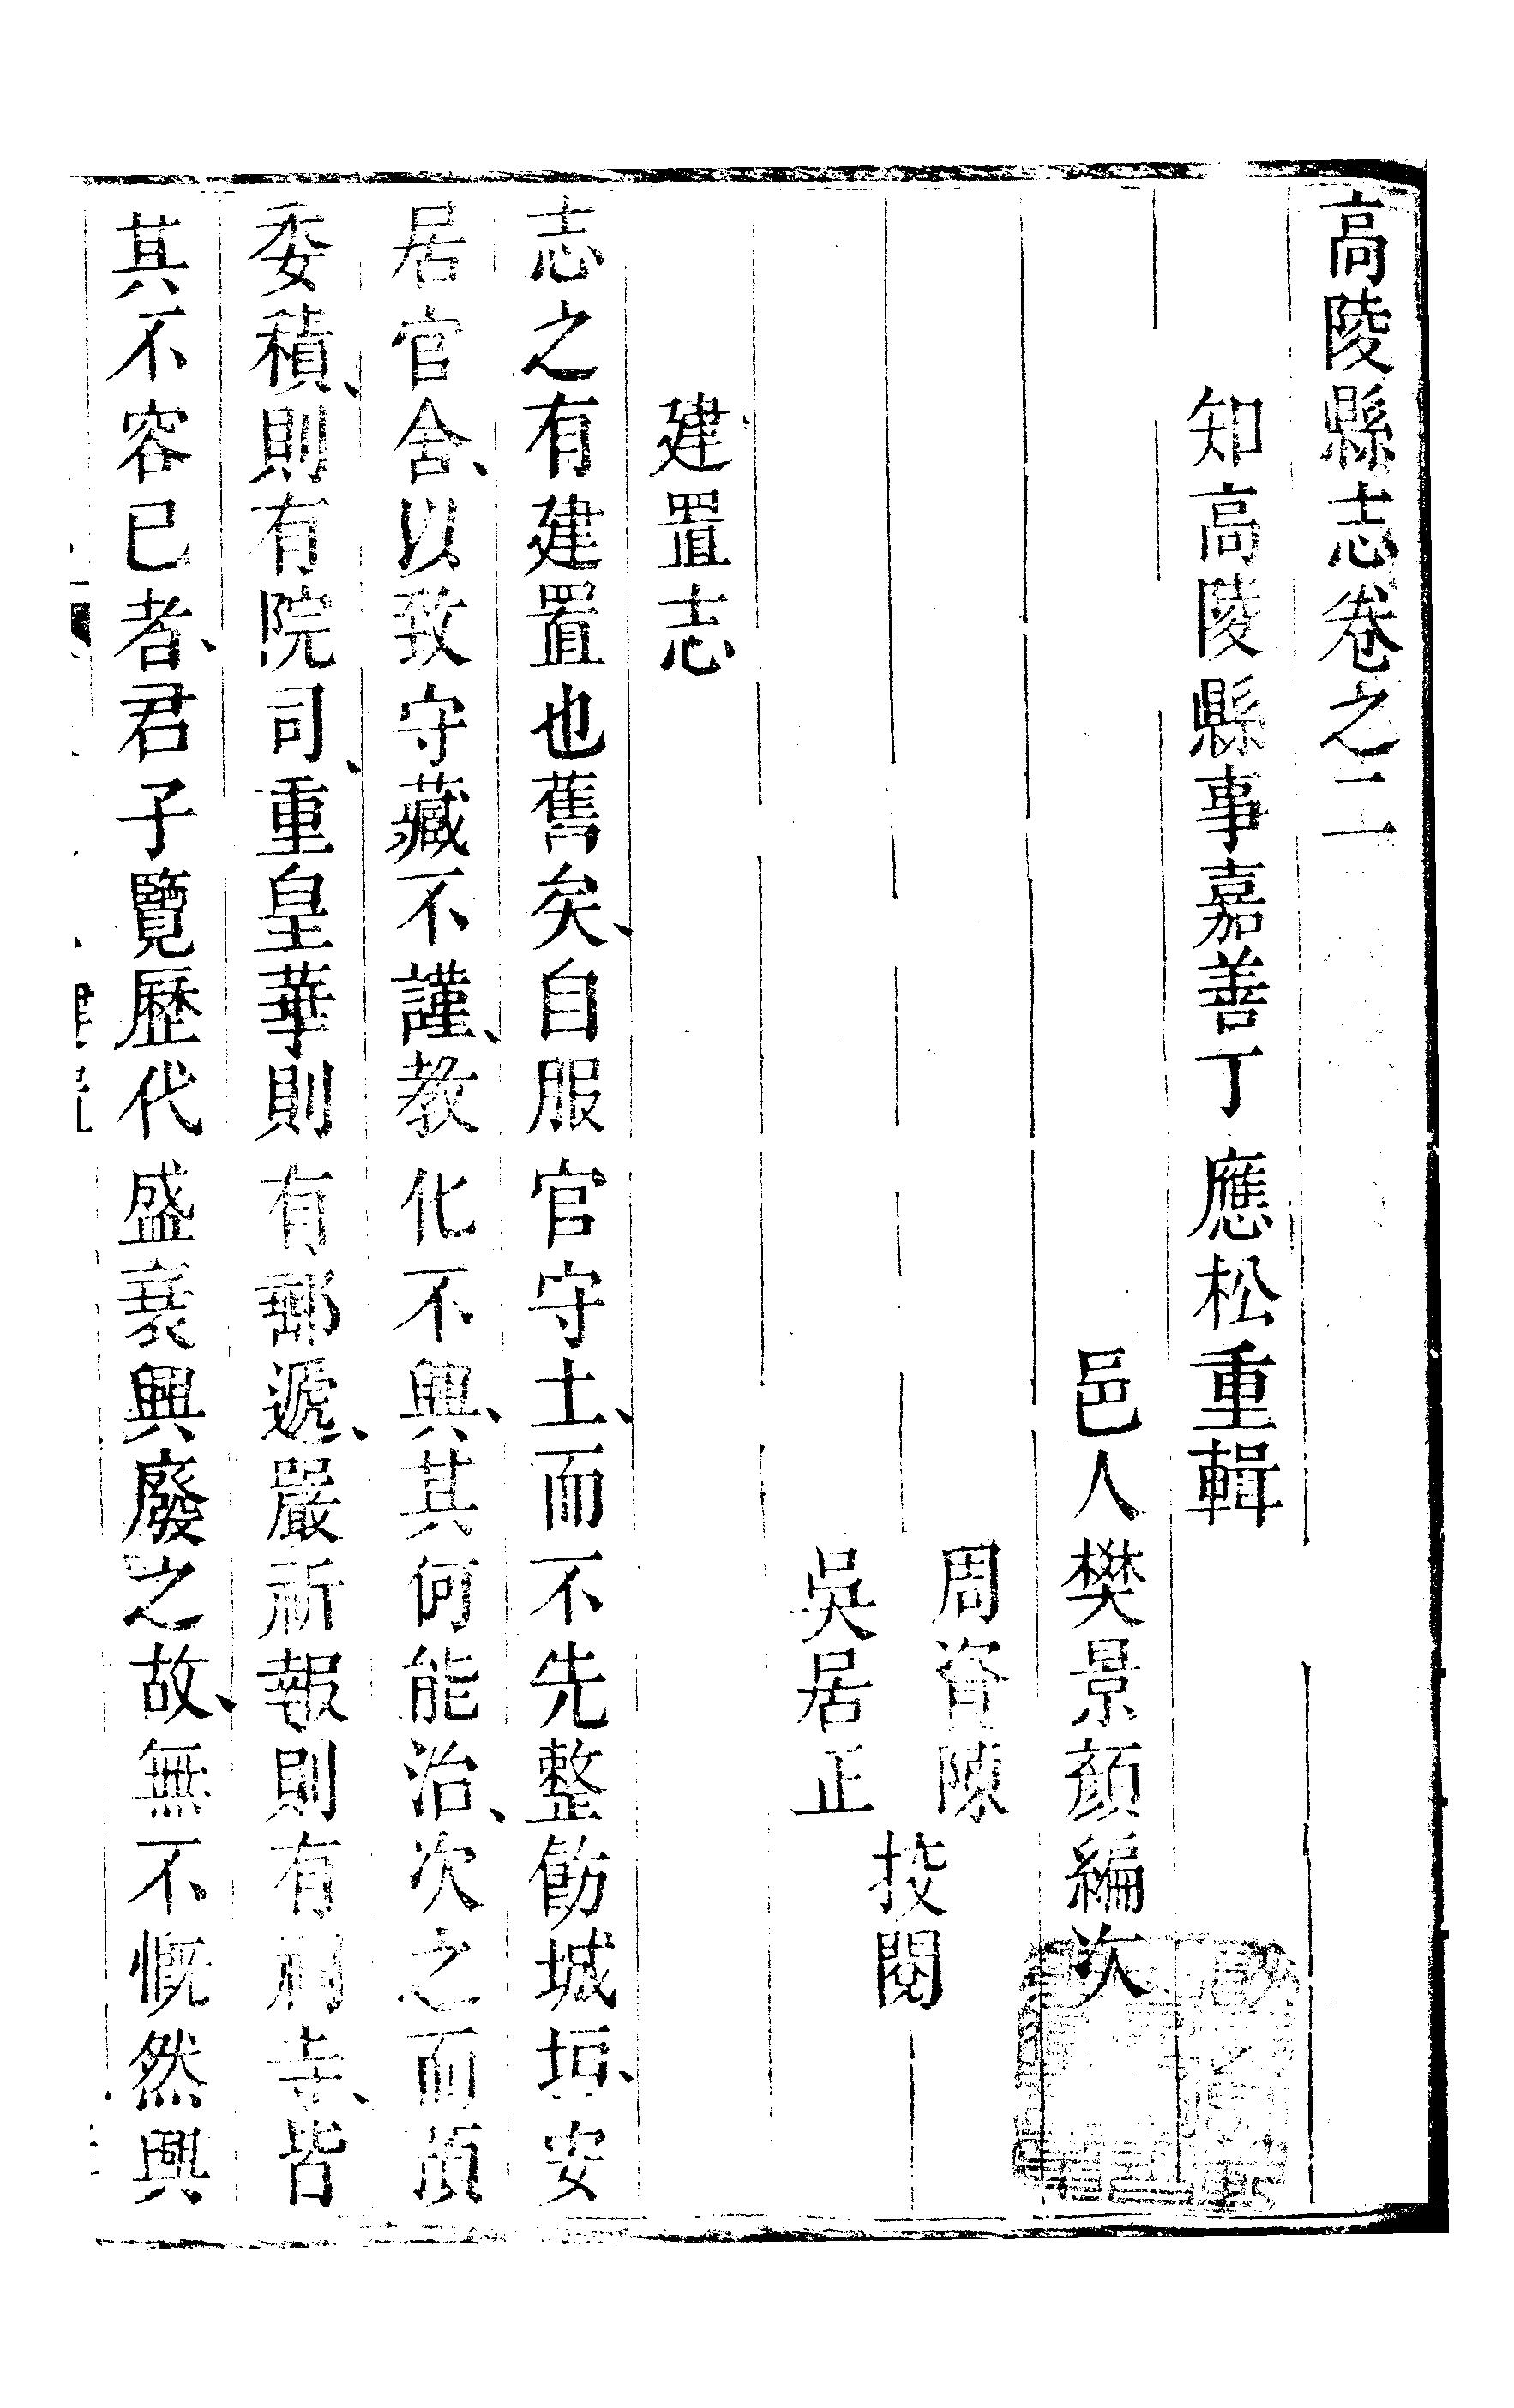 高陵縣志卷之二
知高陵縣事嘉善丁應松重輯
邑人樊景顏編次
周資陳
吳居正
挍閱
建置志
志之有建置也舊矣、自服官守土、而不先整飭城垣、安
居官舍、以致守藏不謹、教化不興、其何能治、次之而須
委積、則有院司、重皇華則有郵遞、嚴祈報則有祠寺、皆
其不容已者、君子覽歷代盛衰興廢之故、無不慨然興